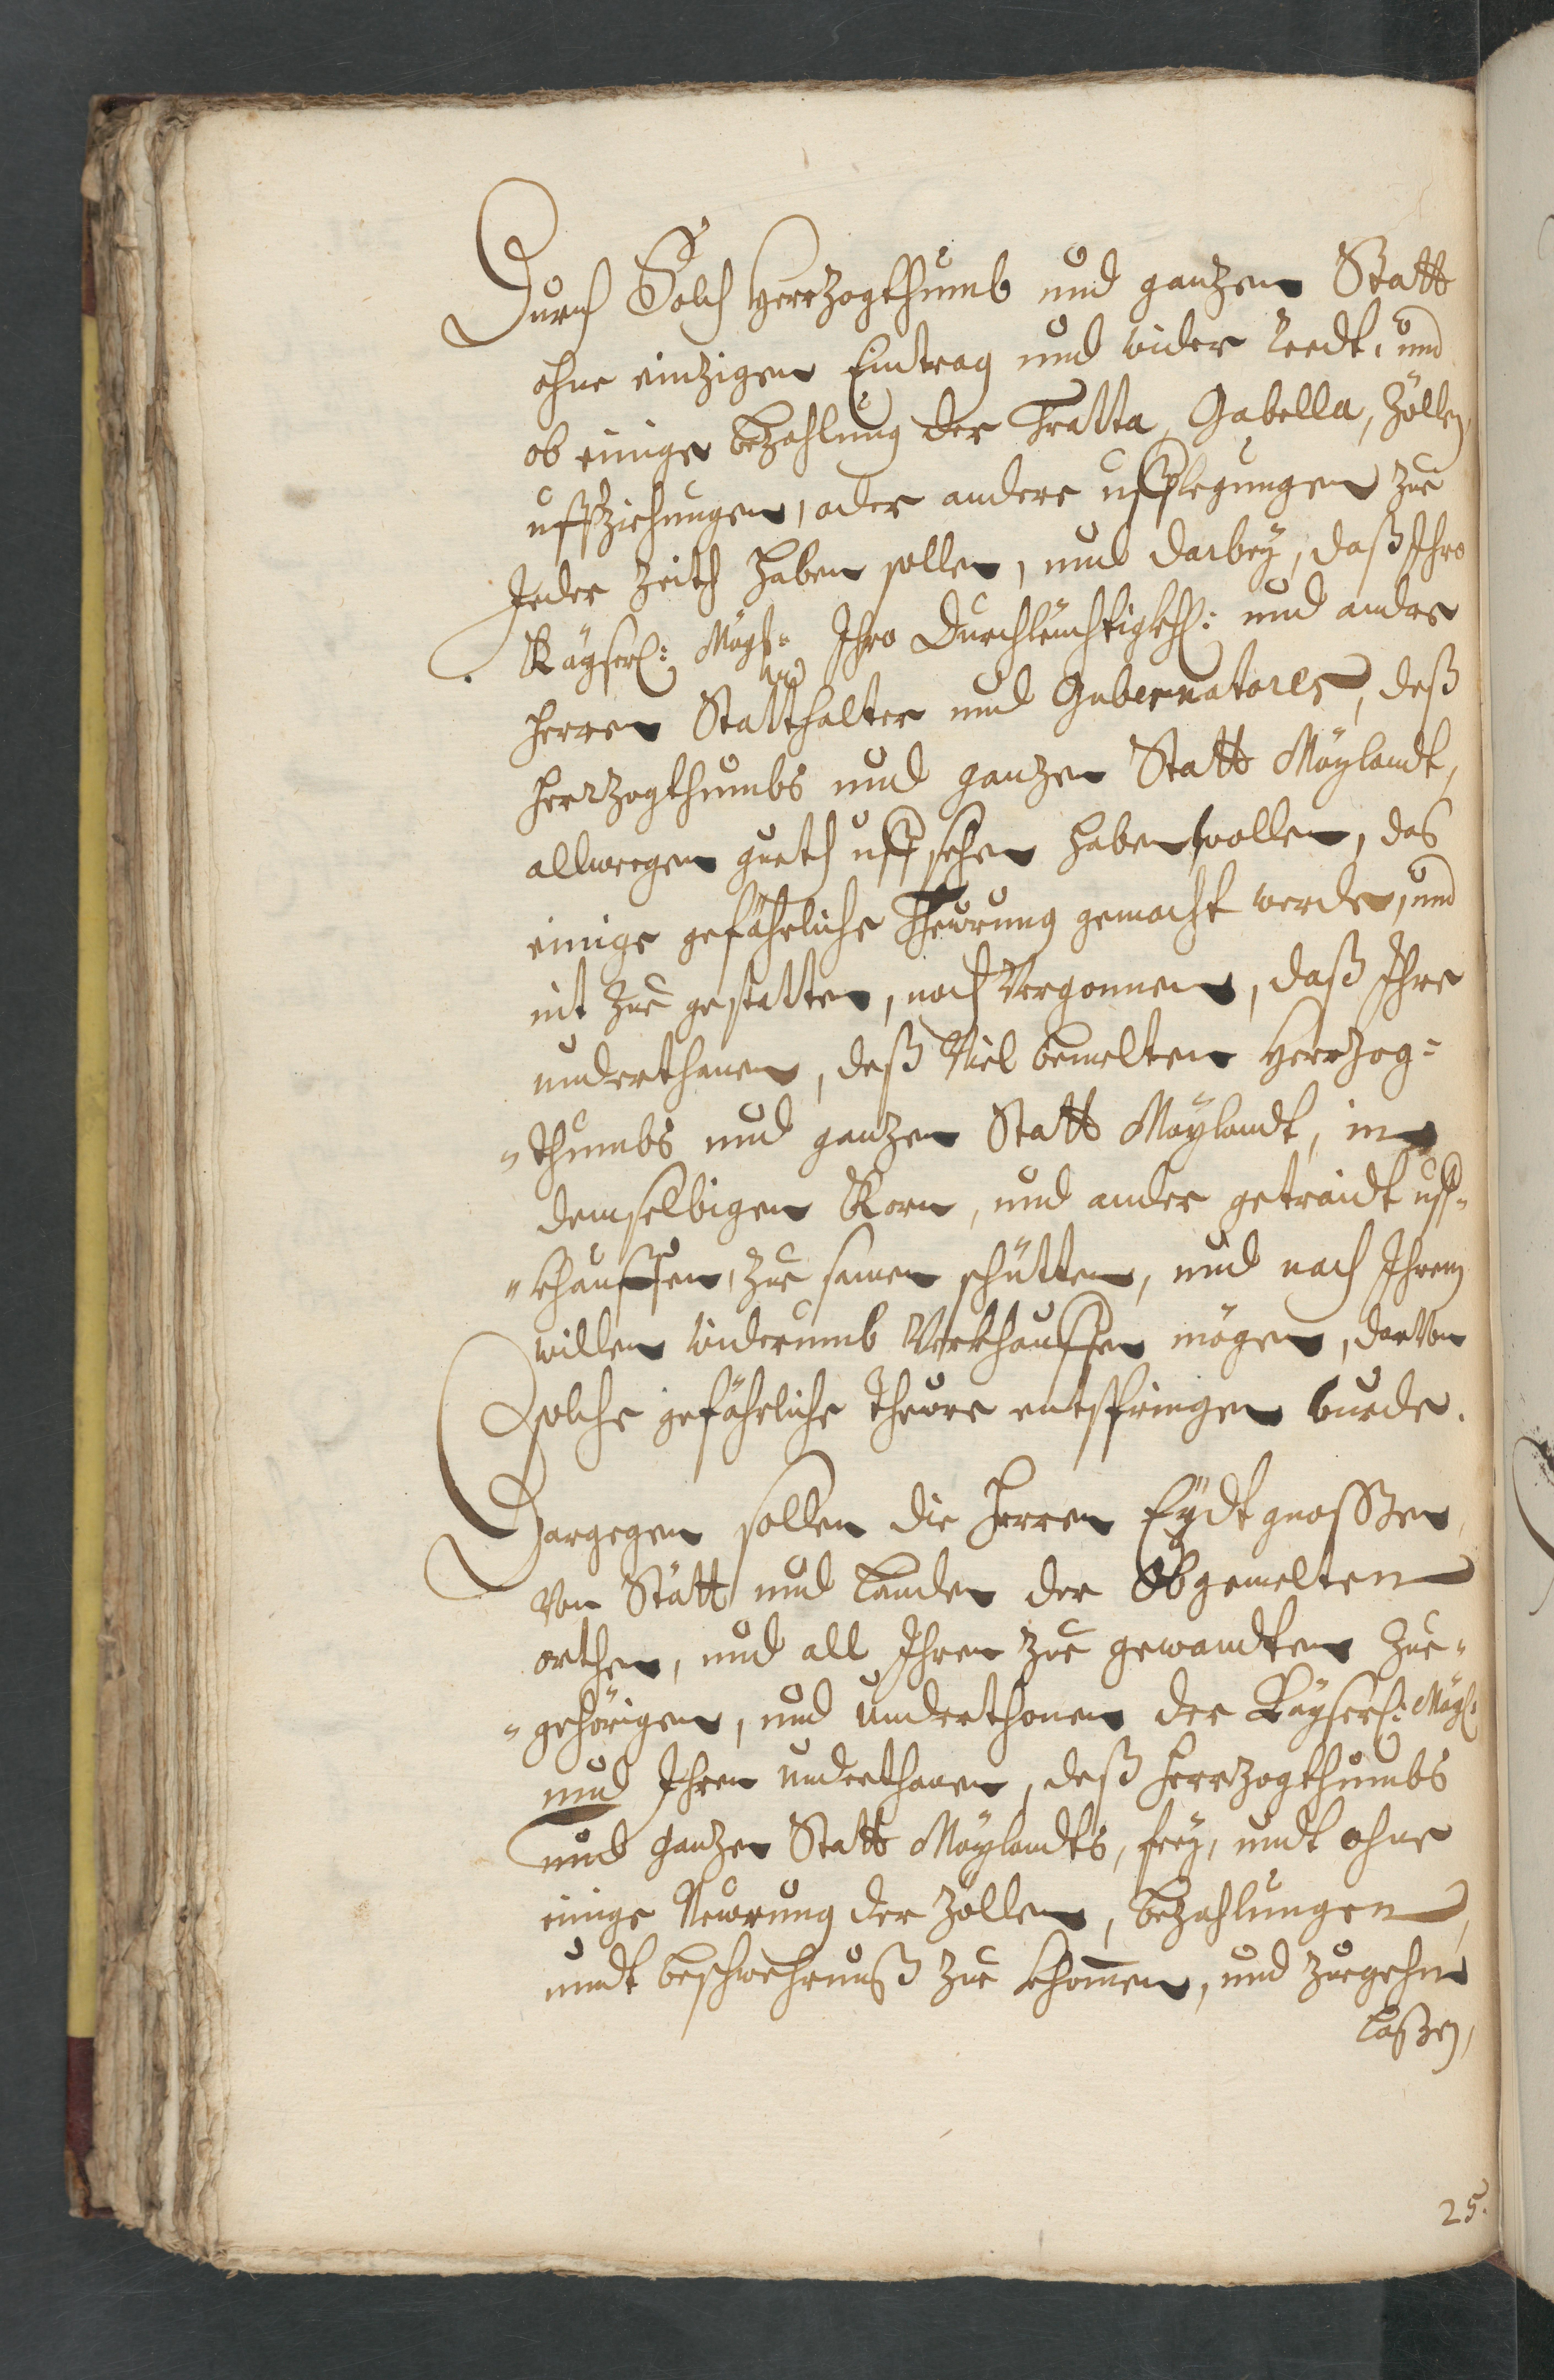 Durch Solch Herrzogthumb und ganzen Statt
ohne einzigen Eintrag und wider Reedt, und
ob einige bezahlung der Tratta, Gabella, Zöllen,
uffziehungen, oder andere ufflegungen zue
Jeder Zeith haben sollen, und darbey, daß Ihro
Kayserl: Mayst: Ihro Durchleüchtigkh: und andre
herren Statthalter und Gubernatores, deß
herzogthumbs und ganzen Statt Maylandt,
allwegen gueth uffsehen haben wollen, das
einige gefährliche Theürung gemacht werde, und
nit zue gestatten, noch Vergonnen, daß Ihre
underthanen, deß Viel bemelten Herrzog=
=thumbs und ganzen Statt Maylandt, in
demselbigen Korn, und ander getraidt uff=
=khauffen, zue samen schütten, und nach Ihrem
willen widerumb Verkhauffen mögen, darVon
solche gefährliche theüre entspringen wurde.
Dargegen sollen die Herren Eydtgnossen
Von Stätt und Landen der Obgemelten
orthen, und all Ihren zue gewandten Zue=
=gehörigen, und underthonen der Kayserl: Mayst:
und Ihren underthanen, deß Herrzogthumbs
und ganzen Statt Maylandts, frey, undt ohne
einige Neüwrung der Zöllen, bezahlungen,
undt beschwehrnuß zue khomen, und zuegehn
Laßen,
25.